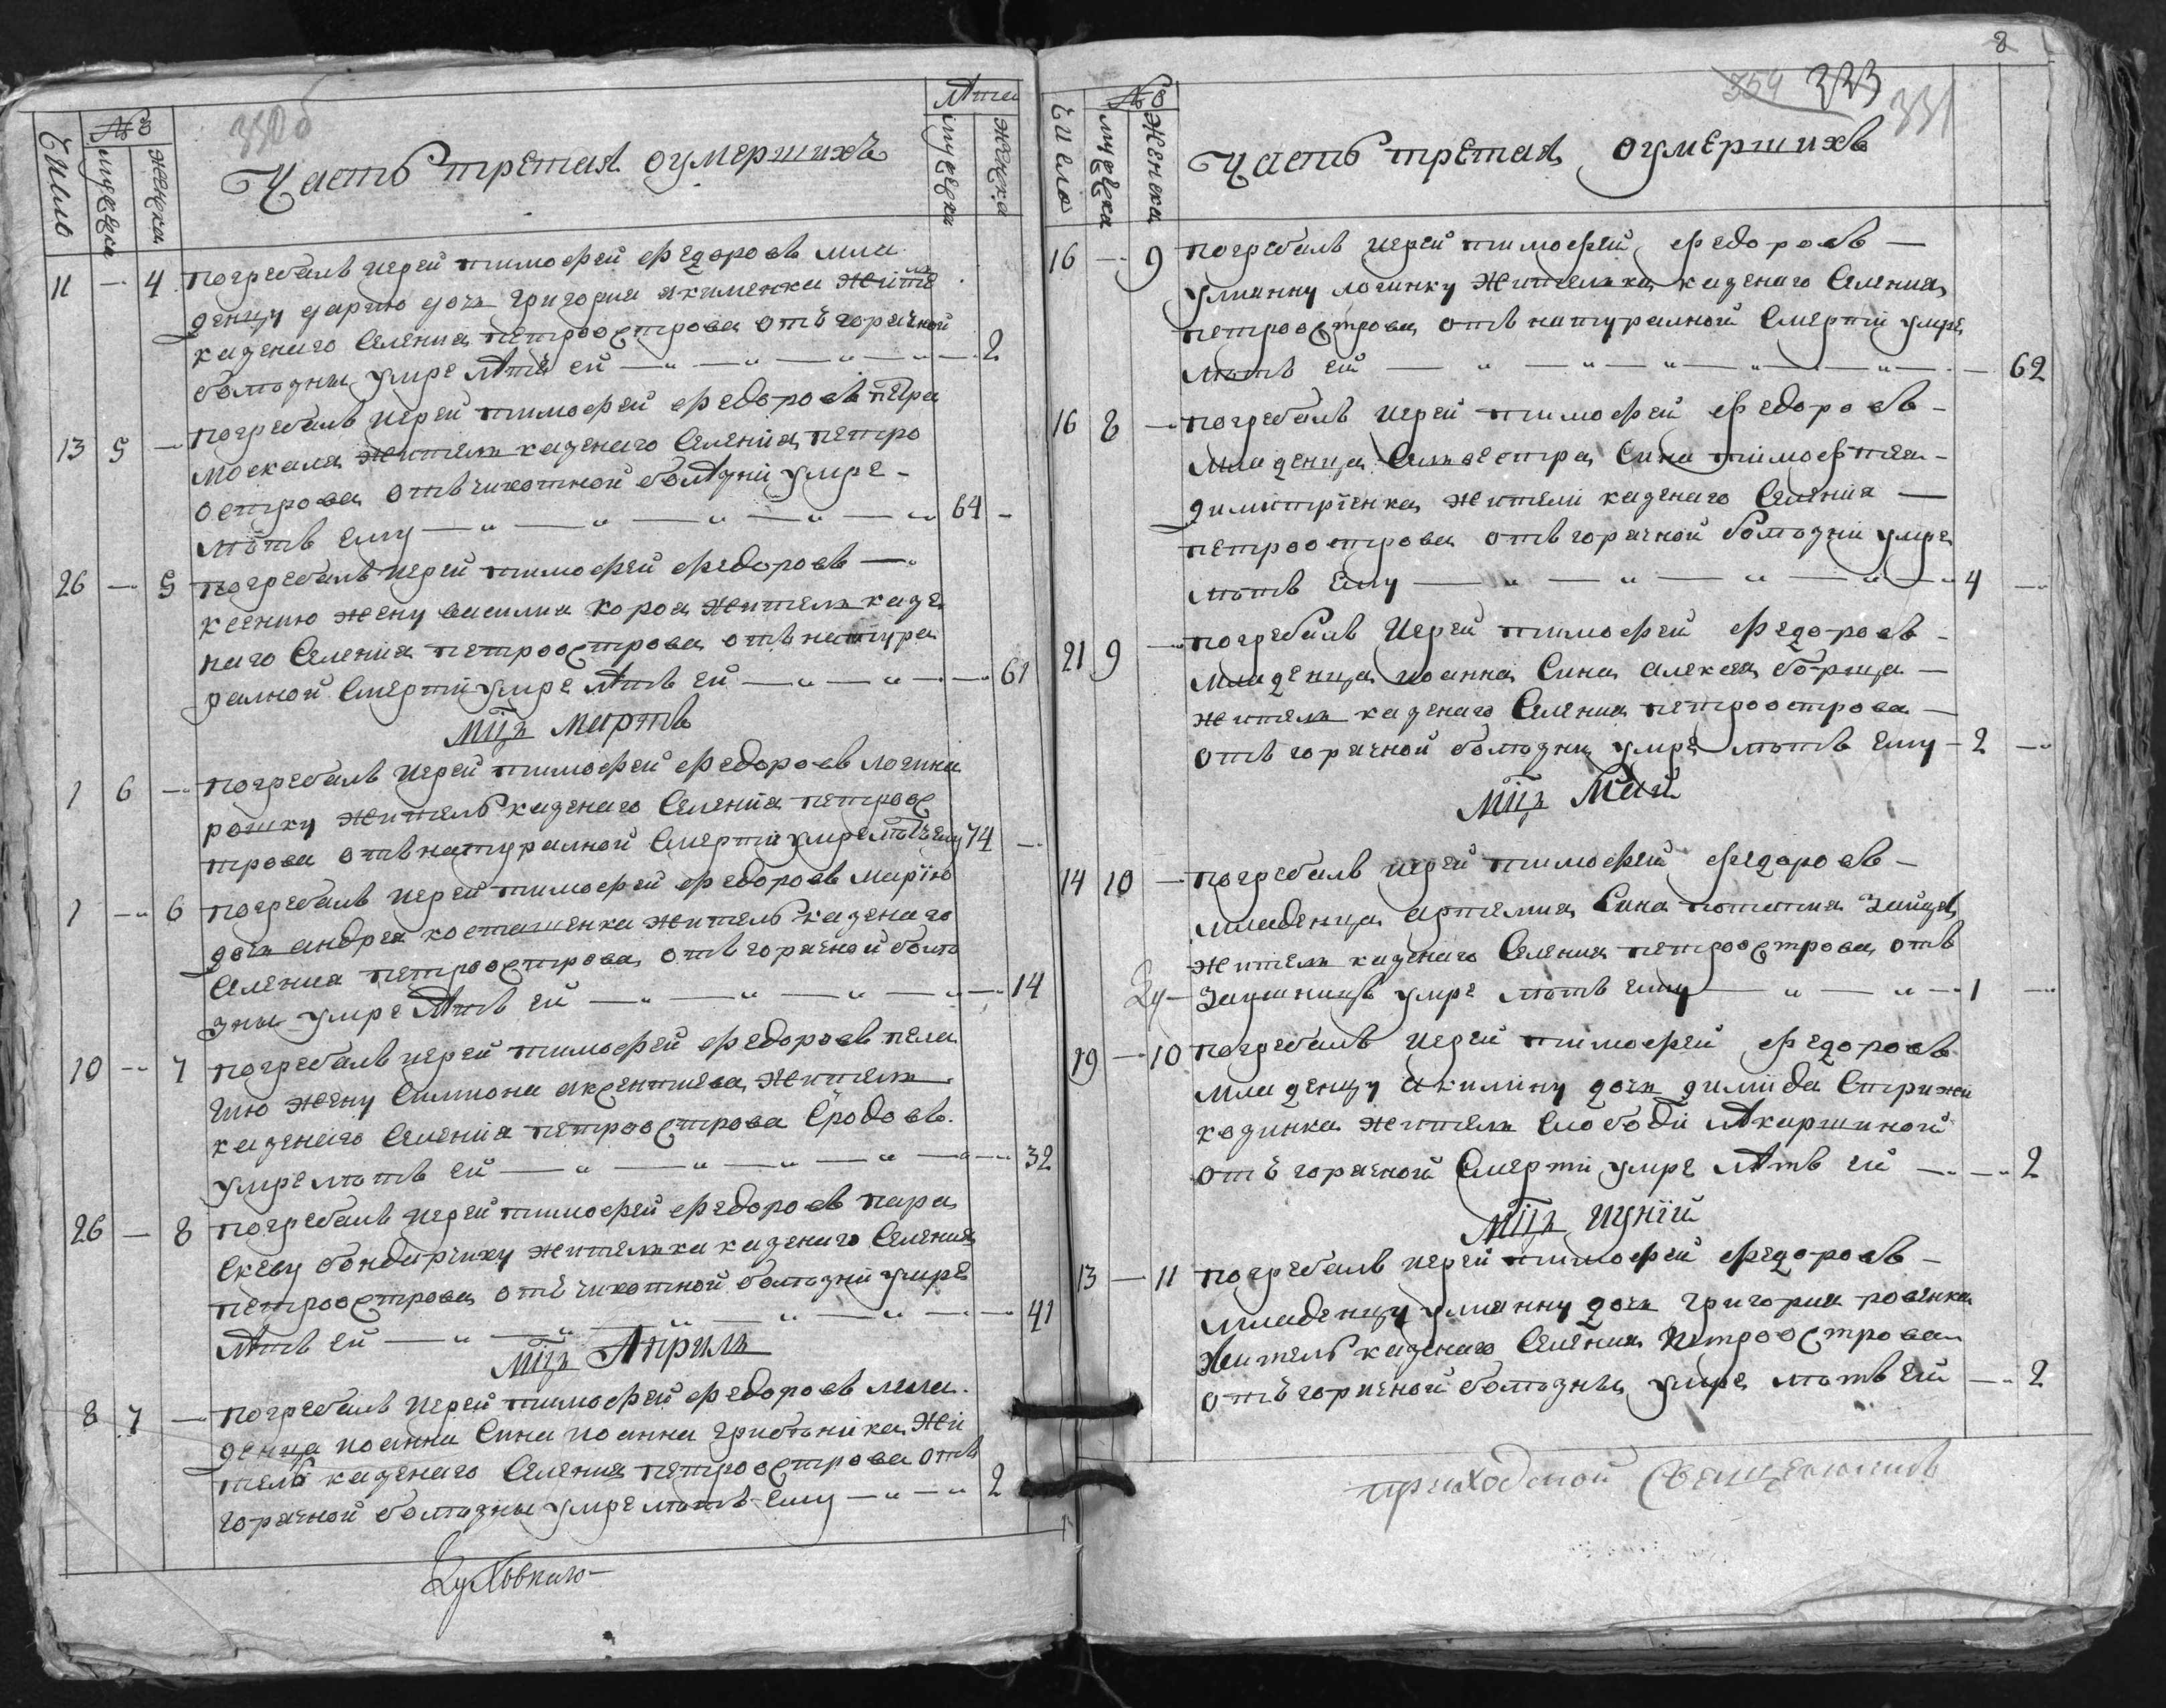 330б
Часть третая оумерших
Число
№в
мужеска
женска
Лѣта
мужеска
женска
11 — 4 погребалъ иерей тимофей федоровъ мла
денцу дарию дочь григория якименка жите
казенаго селения петроострова отъ горачной
болѣзны умре лѣтъ ей — 2
13 5 — погребалъ иерей тимофей федоровъ петра
москаля жителя казенаго селения петро
острова отъ чихотной болѣзни умре -
лѣтъ ему — 64 -
26 — 5 погребалъ иерей тимофей федоровъ —
ксению жену василия короя жителя казе
наго селения петроострова отъ натура
ралной смерти умре лѣтъ ей — 61
мцъ мартъ
1 6 — погребалъ иерей тимофей федоровъ логина
рошку житель казенаго селения петроос
трова отъ натуралной смерти умре лѣтъ ему 74 —
1 — 6 погребалъ иерей тимофей федоровъ марию
дочь андрея косташенка житель казенаго
селения петроострова отъ горачной болѣ
зны умре лѣтъ ей — 14
10 — 7 погребалъ иерей тимофей федоровъ пела
гию жену симиона аксентиева жителя
казенаго селения петроострова с родовъ
умре лѣтъ ей — 32
26 — 8 погребалъ иерей тимофей федоровъ пара
скеву бондарчиху жителька казенаго селения
петроострова отъ чихотной болѣзни умре
лѣтъ ей — 41
мцъ Априль
8 7 — погребалъ иерей тимофей федоровъ мла
денца иоанна сина иоанна грибѣника жи
тель казенаго селения петроострова отъ
горачной болѣзны умре лѣтъ ему — 2
Духовнаго
8
354 323
331
Часть третая оумершихъ
Число
№в
мужеска
женска
16 — 9 погребалъ иерей тимофей федоровъ —
улианну логинку жителька казенаго селения
петроострова отъ натуралной смерти умре
лѣтъ ей — 62
16 8 — погребалъ иерей тимофей федоровъ -
младенца силвестра сина тимофтея -
димитриенка жители казенаго селения —
петроострова отъ горачной болѣзни умре
лѣтъ ему — 4 —
21 9 — погребалъ иерей тимофей федоровъ -
младенца иоанна сина алексея борща —
жителя казенаго селения петроострова —
отъ горачной болѣзни умре лѣтъ ему - 2 —
мцъ Май
14 10 — погребалъ иерей тимофей федоровъ -
младенца артемия сина потапия зайца
жителя казенаго селения петроострова отъ
заушницъ умре лѣтъ ему — 1 —
19 — 10 погребалъ иерей тимофей федоровъ
младенцу акилину дочь димида стрижа
жителя слободи
отъ горачной смерти умре лѣтъ ей — 2
мцъ иуний
13 — 11 погребалъ иерей тимофей федоровъ -
младенцу улианну дочь григория ровенка
житель казенаго селения петроострова
отъ горачной болѣзны умре лѣтъ ей — 2
приходской священникъ